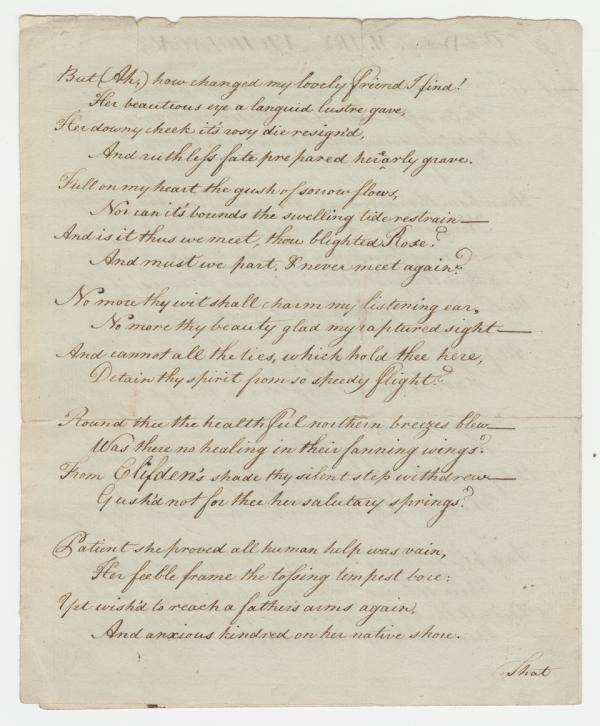 But (Ah,) how changed my lovely friend I find!
Her beauteous eye a languid lustre gave,
Her downy cheek it's rosy die resign'd,
And ruthless fate prepared her early grave.
Full on my heart the gush of sorrow flows,
Nor can it's bounds the swelling tide restrain—
And is it thus we meet, thou blighted Rose?
And must we part, & never meet again?
No more thy wit shall charm my listening ear,
No more thy beauty glad my raptured sight—
And cannot all the ties, which hold thee here,
Detain thy spirit from so speedy flight?
Round thee the healthful northern breezes blew—
Was there no healing in their fanning wings?
From Clifden's shade thy silent step withdrew—
Gush'd not for thee her salutary springs?
Patient she proved all human help was vain,
Her feeble frame the tossing tempest bore:
Yet wish'd to reach a father's arms again,
And anxious kindred on her native shore.
That